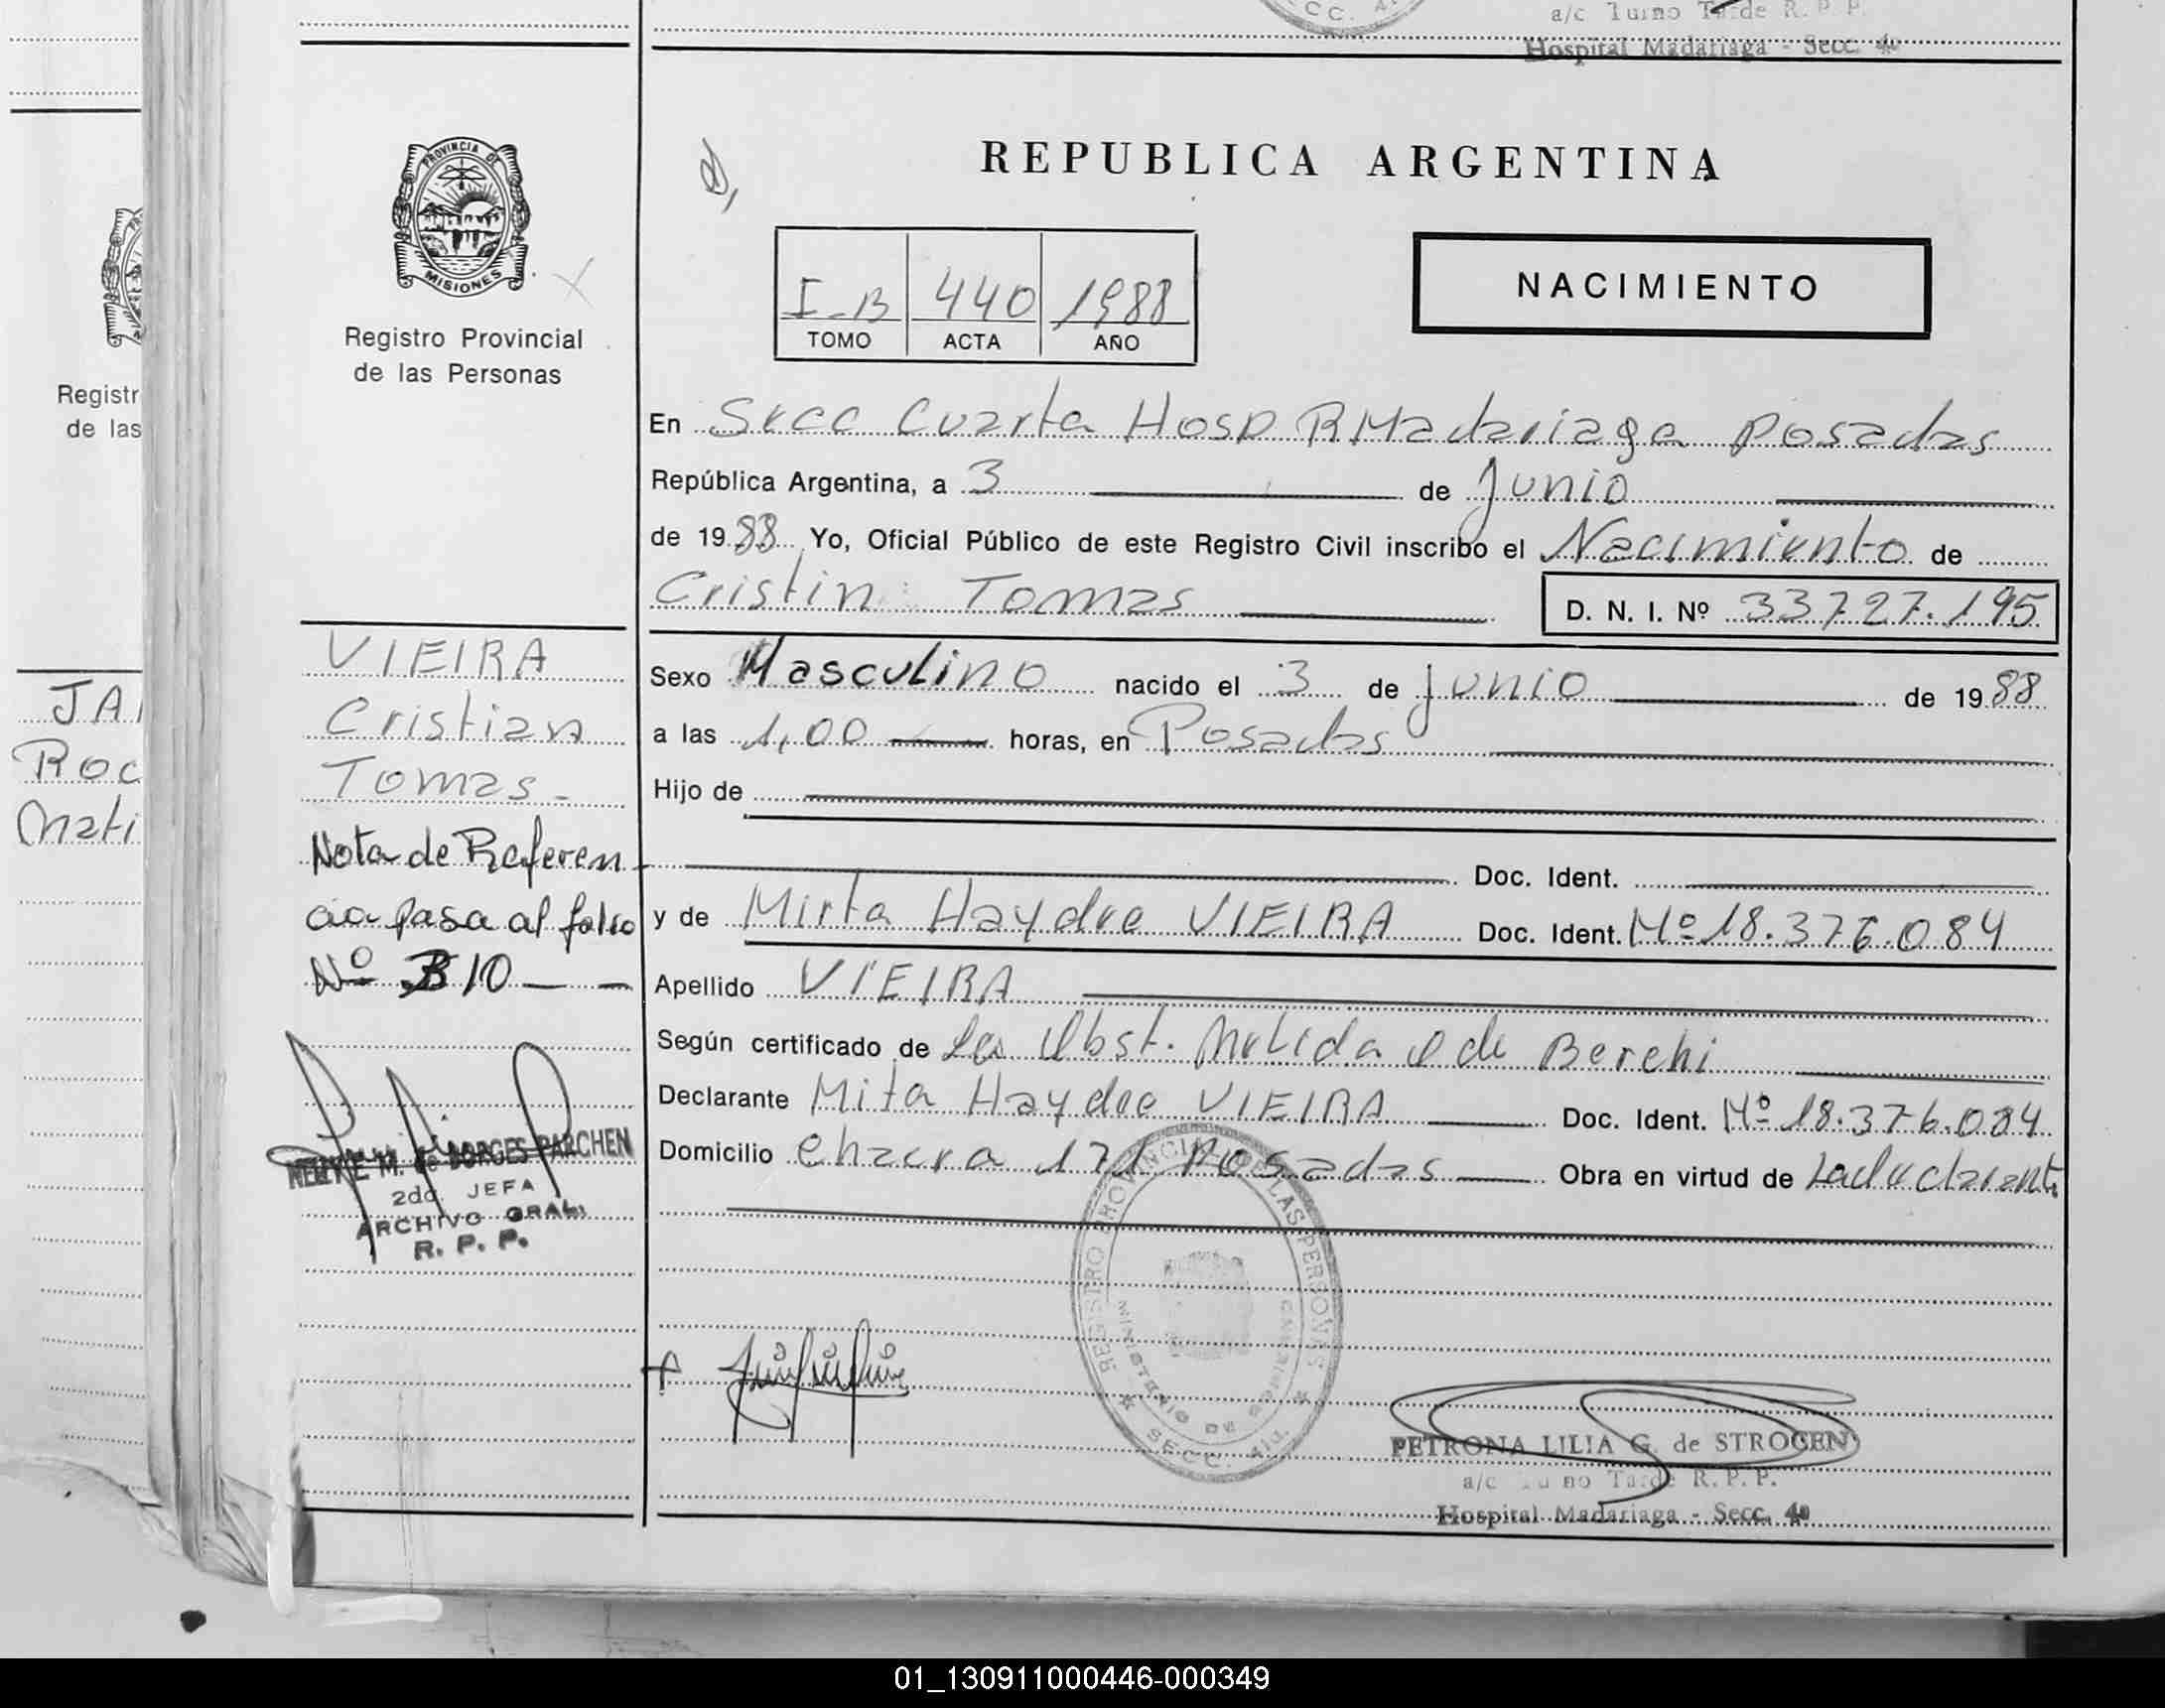 CC. 4
a/c Turno Tarde R. P. P.
Hospital Madariaga - Secc. 4a
PROVINCIA DE
MISIONES
Registro Provincial
de las Personas
REPUBLICA ARGENTINA
NACIMIENTO
I-B 440 1988
TOMO ACTA AÑO
En Secc Cuarta Hosp RMadariaga Posadas
República Argentina, a 3 de Junio
de 1988 Yo, Oficial Público de este Registro Civil inscribo el Nacimiento de
Cristin Tomas
D. N. I. Nº 33727.195
Sexo Masculino nacido el 3 de junio de 1988
a las 1,00 horas, en Posadas
Hijo de
Doc. Ident.
y de Mirta Haydee VIEIRA Doc. Ident. Nº 18.376.084
Apellido VIEIRA
Según certificado de La Obst. Nelida O de Berchi
Declarante Mita Haydee VIEIRA Doc. Ident. Nº 18.376.084
Domicilio Chacra 171 Posadas Obra en virtud de La declarante
REGISTRO PROVINCIAL DE LAS PERSONAS
MINISTERIO DE
SECC. 4ta.
PETRONA LILIA G. de STROGEN
a/c Turno Tarde R. P. P.
Hospital Madariaga - Secc. 4a
VIEIRA
Cristian
Tomas-
Nota de Referen
cia pasa al folio
Nº 310
NELLY E. M. de BORGES PARCHEN
2da. JEFA
ARCHIVO GRAL.
R. P. P.
Registr
de las
JA
Roc
Mati
01_130911000446-000349